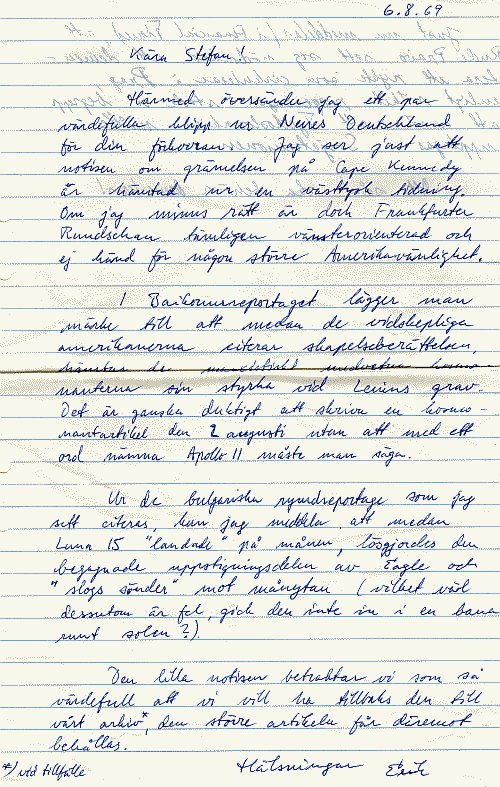 6.8.69
Kära Stefan!
Härmed översänder jag ett par
värdefulla klipp ur Neues Deutschland
för din förkovran. Jag ser just att
notisen om grämelsen på Cape Kennedy
är hämtad ur en västtysk tidning.
Om jag minns rätt är dock Frankfurter
Rundschau tämligen vänsterorienterad och
ej känd för någon större Amerikavänlighet.
I Baikonurreportaget lägger man
märke till att medan de vidskepliga
amerikanerna citerar skapelseberättelsen,
hämtar de kosmo-
nauterna sin styrka vid Lenins grav.
Det är ganska duktigt att skriva en kosmo-
nautartikel den 2 augusti utan att med ett
ord nämna Apollo 11 måste man säga.
Ur de bulgariska rymdreportage som jag
sett citeras, kan jag meddela, att medan
Luna 15 "landade" på månen, lösgjordes den
begagnade uppstigningsdelen av Eagle och
"slogs sönder" mot månytan (vilket väl
dessutom är fel, gick den inte in i en bana
runt solen?).
Den lilla notisen betraktar vi som så
värdefull att vi vill ha tillbaks den till
vårt arkiv*, den större artikeln får däremot
behållas.
*) vid tillfälle
Hälsningar Erik